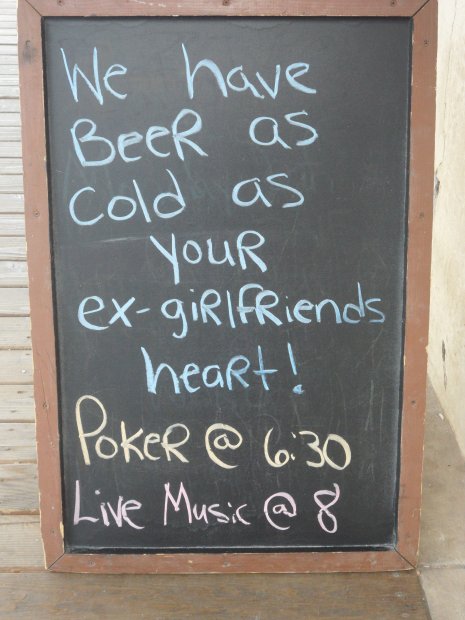 We have
BeeR as
Cold as
youR
ex-giRlfRiends
heaRt!
PokeR @ 6:30
Live Music @ 8